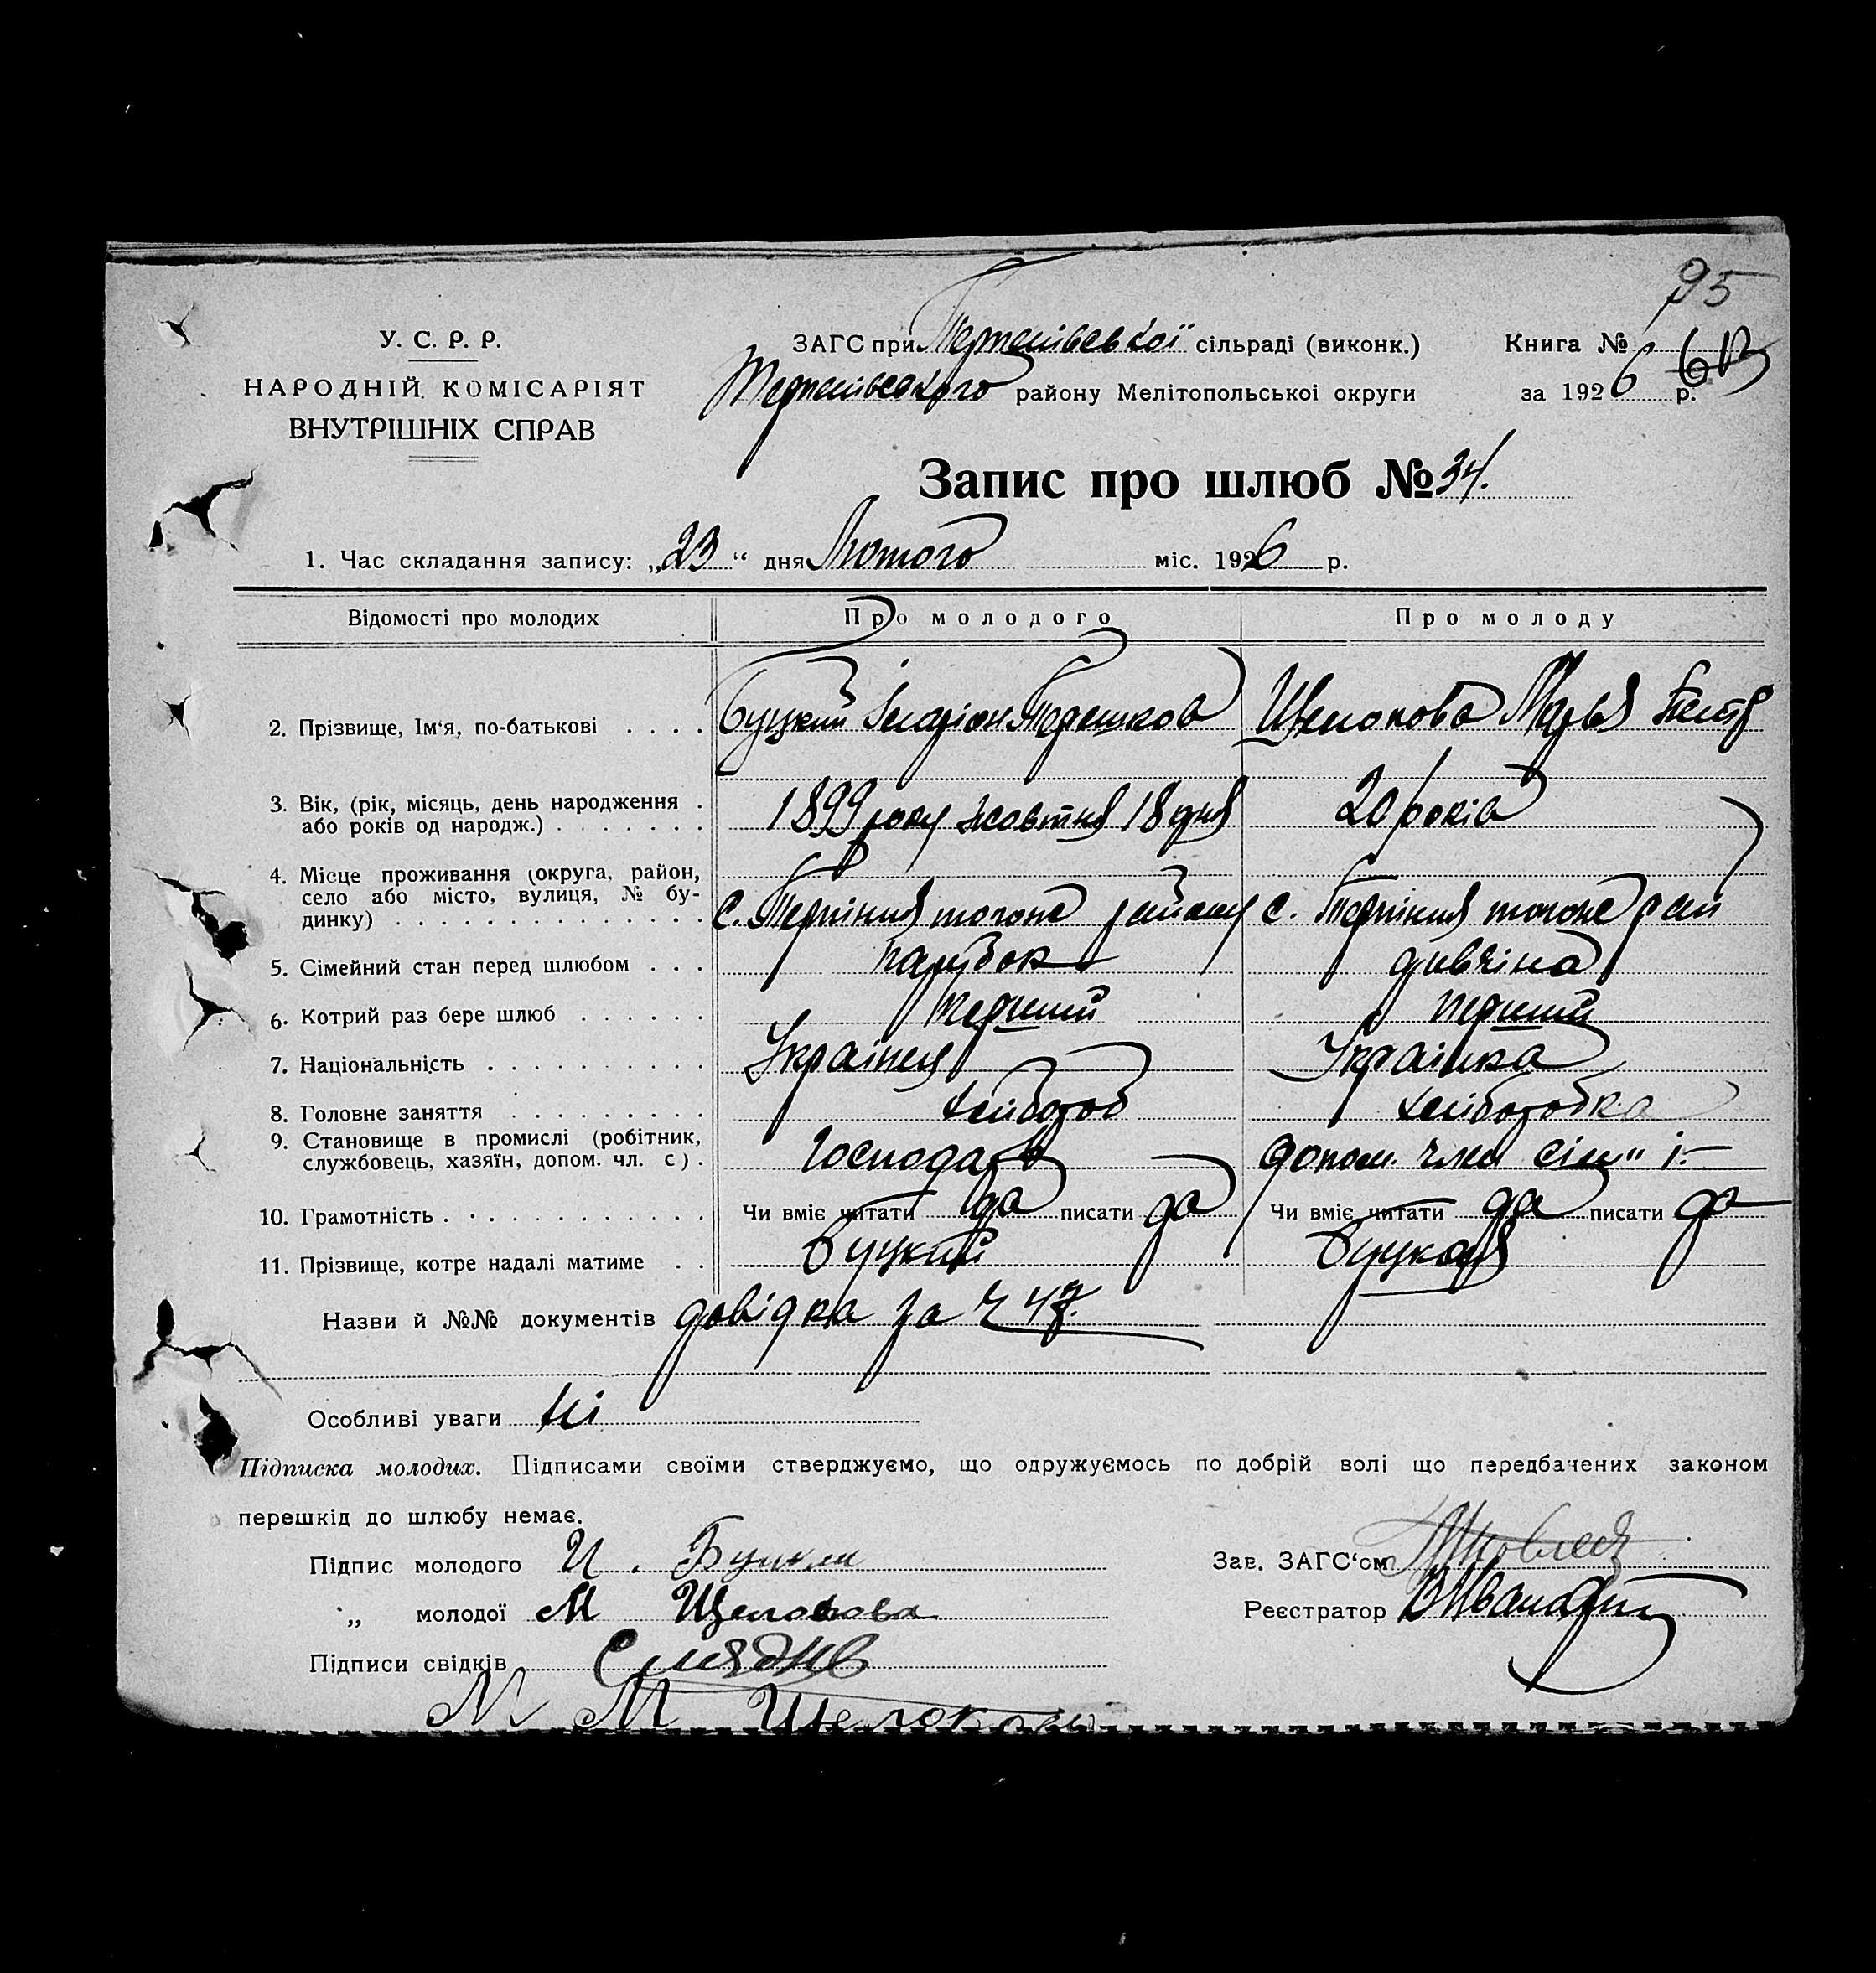 95
У. С. Р. Р.
НАРОДНІЙ КОМІСАРІЯТ
ВНУТРІШНІХ СПРАВ
ЗАГС при Терпеніевскої сільраді (виконк.)
Терпеніевского району Мелітопольської округи
Книга № 6
за 1926 р.
Запис про шлюб № 34.
1. Час складання запису: „23" дня Лютого міс. 1926 р.
Відомості про молодих
Про молодого
Про молоду
2. Прізвище, Ім'я, по-батькові . . . .
Буцкий Іларіон
Щелокова Марья
3. Вік, (рік, місяць, день народження .
або років од народж.) . . . . . . .
1899 року жовтня 18 дня
20 років
4. Місце проживання (округа, район,
село або місто, вулиця, № бу-
динку) . . . . . . . . . . . . . .
с. Терпіння того же району
с. Терпіння того же рай
5. Сімейний стан перед шлюбом . . .
парубок
дивчіна
6. Котрий раз бере шлюб . . . . . .
перший
перший
7. Національність . . . . . . . . . .
Українец
Українка
8. Головне заняття . . . . . . . . .
хлібороб
хліборобка
9. Становище в промислі (робітник,
службовець, хазяїн, допом. чл. с) .
Господарь
допом. член сім"ї
10. Грамотність . . . . . . . . . . . .
Чи вміє читати да писати да
Чи вміє читати да писати да
11. Прізвище, котре надалі матиме . .
Буцкий
Буцкая
Назви й №№ документів довідка за ч 47.
Особливі уваги ні
Підписка молодих. Підписами своїми стверджуємо, що одружуємось по добрій волі що передбачених законом
перешкід до шлюбу немає.
Підпис молодого И. Буцкий
„ молодої М Щелокова
Підписи свідків
М М Щелокова
Зав. ЗАГС'ом
Реєстратор